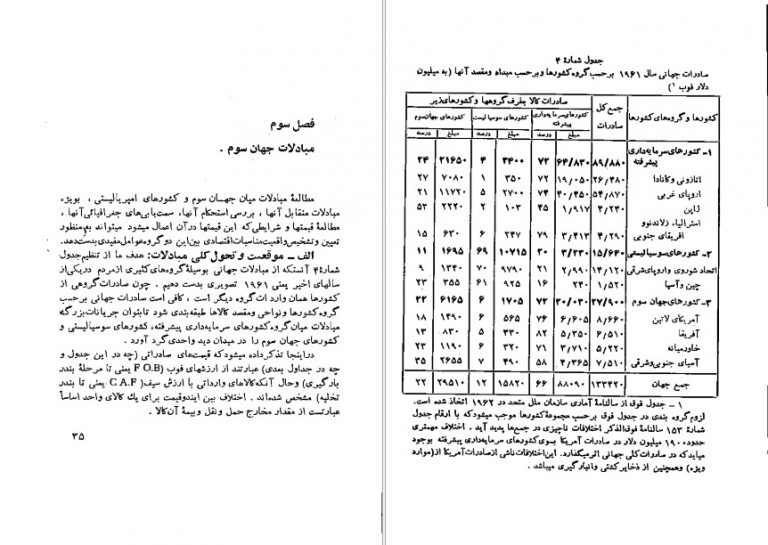 جدول شمارهٔ ۴
صادرات جهانی سال ۱۹۶۱ برحسب گروه کشورها و برحسب مبداء و مقصد آنها (به میلیون
دلار فوب ۱)
کشورها و گروه‌های کشورها جمع کل صادرات صادرات کالا بطرف گروهها و کشورهای زیر
کشورهای سرمایه‌داری پیشرفته کشورهای سوسیالیست کشورهای جهان سوم
مبلغ درصد مبلغ درصد مبلغ درصد
۱ـ کشورهای سرمایه‌داری
پیشرفته ۸۹/۸۸۰ ۶۴/۸۳۰ ۷۲ ۳۴۰۰ ۴ ۲۱۶۵۰ ۲۴
اتازونی و کانادا ۲۶,۴۸۰ ۱۹,۰۵۰ ۷۲ ۳۵۰ ۱ ۷۰۸۰ ۲۷
اروپای غربی ۵۴,۸۷۰ ۴۰,۴۵۰ ۷۴ ۲۷۰۰ ۵ ۱۱۷۲۰ ۲۱
ژاپن ۴,۲۴۰ ۱,۹۱۷ ۴۵ ۱۰۳ ۲ ۲۲۲۰ ۵۳
استرالیا، زلاندنوو
افریقای جنوبی ۴,۲۹۰ ۳,۴۱۳ ۷۹ ۲۴۷ ۶ ۶۳۰ ۱۵
۲ـ کشورهای سوسیالیستی ۱۵/۶۴۰ ۳/۲۳۰ ۲۰ ۱۰۷۱۵ ۶۹ ۱۶۹۵ ۱۱
اتحاد شوروی و اروپای شرقی ۱۴,۱۲۰ ۲,۹۹۰ ۲۱ ۹۷۹۰ ۷۰ ۱۳۴۰ ۹
چین و آسیا ۱,۵۲۰ ۲۴۰ ۱۶ ۹۲۵ ۶۱ ۳۵۵ ۲۳
۳ـ کشورهای جهان سوم ۲۷/۹۰۰ ۲۰/۰۳۰ ۷۲ ۱۷۰۵ ۶ ۶۱۶۵ ۲۲
آمریکای لاتین ۸,۶۶۰ ۶,۶۰۵ ۷۶ ۵۶۵ ۶ ۱۴۹۰ ۱۸
آفریقا ۶,۵۱۰ ۵,۳۵۰ ۸۲ ۳۳۰ ۵ ۸۳۰ ۱۳
خاورمیانه ۵,۲۲۰ ۳,۷۱۰ ۷۱ ۳۲۰ ۶ ۱۱۹۰ ۲۳
آسیای جنوبی و شرقی ۷,۵۱۰ ۴,۳۶۵ ۵۸ ۴۹۰ ۷ ۲۶۵۵ ۳۵
جمع جهان ۱۳۳۴۲۰ ۸۸۰۹۰ ۶۶ ۱۵۸۲۰ ۱۲ ۲۹۵۱۰ ۲۲
۱ ـ جدول فوق از سالنامهٔ آماری سازمان ملل متحد در ۱۹۶۲ اتخاذ شده است.
لزوم گروه بندی در جدول فوق برحسب مجموعهٔ کشورها موجب میشود که با ارقام جدول
شمارهٔ ۱۵۳ سالنامهٔ فوق‌الذکر اختلافات ناچیزی در جمع‌ها پدید آید. اختلاف مهمتری
حدود ۱۹۰۰ میلیون دلار در صادرات آمریکا بسوی کشورهای سرمایه‌داری پیشرفته بوجود
میاید که در صادرات کلی جهانی اثر میگذارد. این اختلافات ناشی از صادرات آمریکا از (مواره
ویژه) و همچنین از ذخایر کشتی و انبارگیری میباشد.
فصل سوم
مبادلات جهان سوم .
مطالعهٔ مبادلات میان جهان سوم و کشورهای امپریالیستی، بویژه
مبادلات متقابل آنها، بررسی استحکام آنها، سمت‌یابی‌های جغرافیائی آنها،
مطالعهٔ قیمتها و شرایطی که این قیمتها در آن اعمال میشود میتواند به منظور
تعیین و تشخیص واقعیت مناسبات اقتصادی بین این دو گروه عوامل مفیدی بدست دهد.
الف ـ موقعیت و تحول کلی مبادلات: هدف ما از تنظیم جدول
شمارهٔ ۴ آنستکه از مبادلات جهانی بوسیلهٔ گروه‌های کثیری از مردم در یکی از
سالهای اخیر یعنی ۱۹۶۱ تصویری بدست دهیم. چون صادرات گروهی از
کشورها همان واردات گروه دیگر است، کافی است صادرات جهانی برحسب
گروه کشورها و نواحی و مقصد کالاها طبقه‌بندی شود تا بتوان جریانات بزرگ
مبادلات میان گروه کشورهای سرمایه‌داری پیشرفته، کشورهای سوسیالیستی و
کشورهای جهان سوم را در میدان دید واحدی گرد آورد.
در اینجا تذکر داده میشود که قیمت‌های صادراتی (چه در این جدول و
چه در جداول بعدی) عبارتند از ارزشهای فوب (F O.B یعنی تا مرحلهٔ بندر
بارگیری) و حال آنکه کالاهای وارداتی با ارزش سیف (C.A.F یعنی تا بندر
تخلیه) مشخص شده‌اند. اختلاف بین ایندو قیمت برای یک کالای واحد اساساً
عبارتست از مقدار مخارج حمل و نقل و بیمهٔ آن کالا.
۳۵